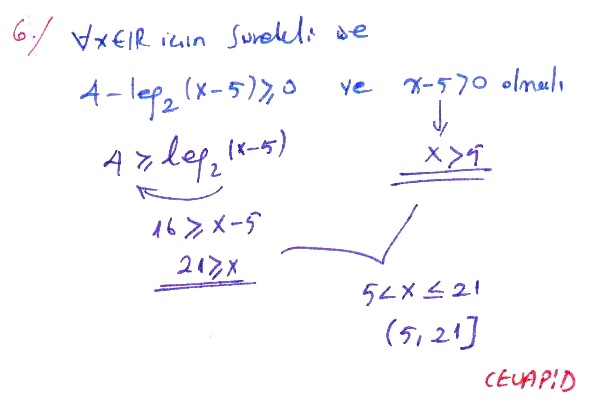 6./ ∀x∈IR için sürekli ve
4-log₂(x-5)≥0 ve x-5>0 olmalı
4≥log₂(x-5)
x>5
16≥x-5
21≥x
5<x≤21
(5,21]
CEVAP:D